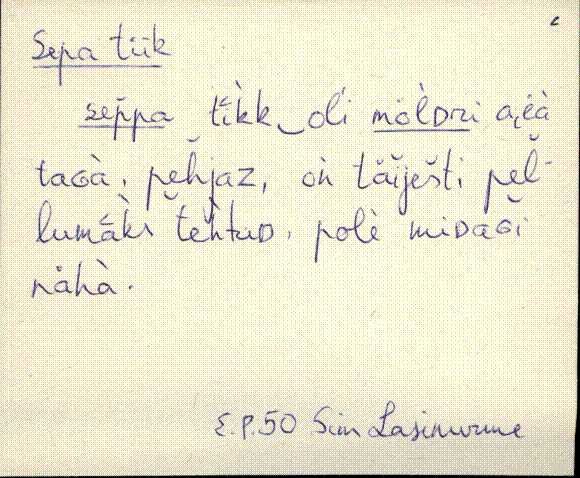 Sepa tiik
sep̆pa tìkk‿oĺi möl̀dri aiɛ̀à
taɢà, pĕh́jaz, oń tăi̮ješti pĕĺ-
lumàks tĕh̀tuD, polè miDaɢĭ
nähà.
E.P.50 Sim Lasinurme